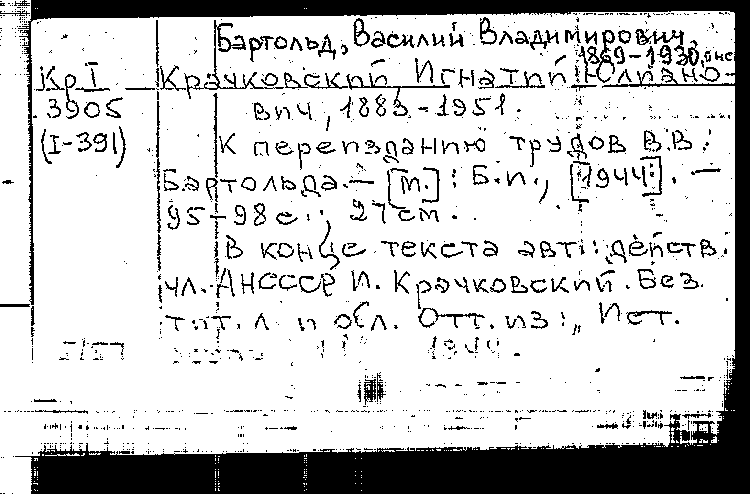 Бартольд, Василий Владимирович,
1869-1930,
Кр I Крачковский, Игнатий Юлиано-
3905 вич, 1883-1951.
(I-391) К переизданию трудов В.В.
Бартольда.- [м.]: Б.и., [1944]. -
95-98 с.; 27 см.
В конце текста авт.: действ.
чл. АНСССР И. Крачковский. Без
тит. л. и обл. Отт. из: „Ист.
1944.